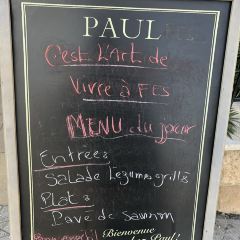 PAUL
C'est L'Art de
Vivre à FES
MENU du jour
Entrées
Salade Légumes grillés
Plat :
Pavé de Saumon
Bienvenue
Paul!